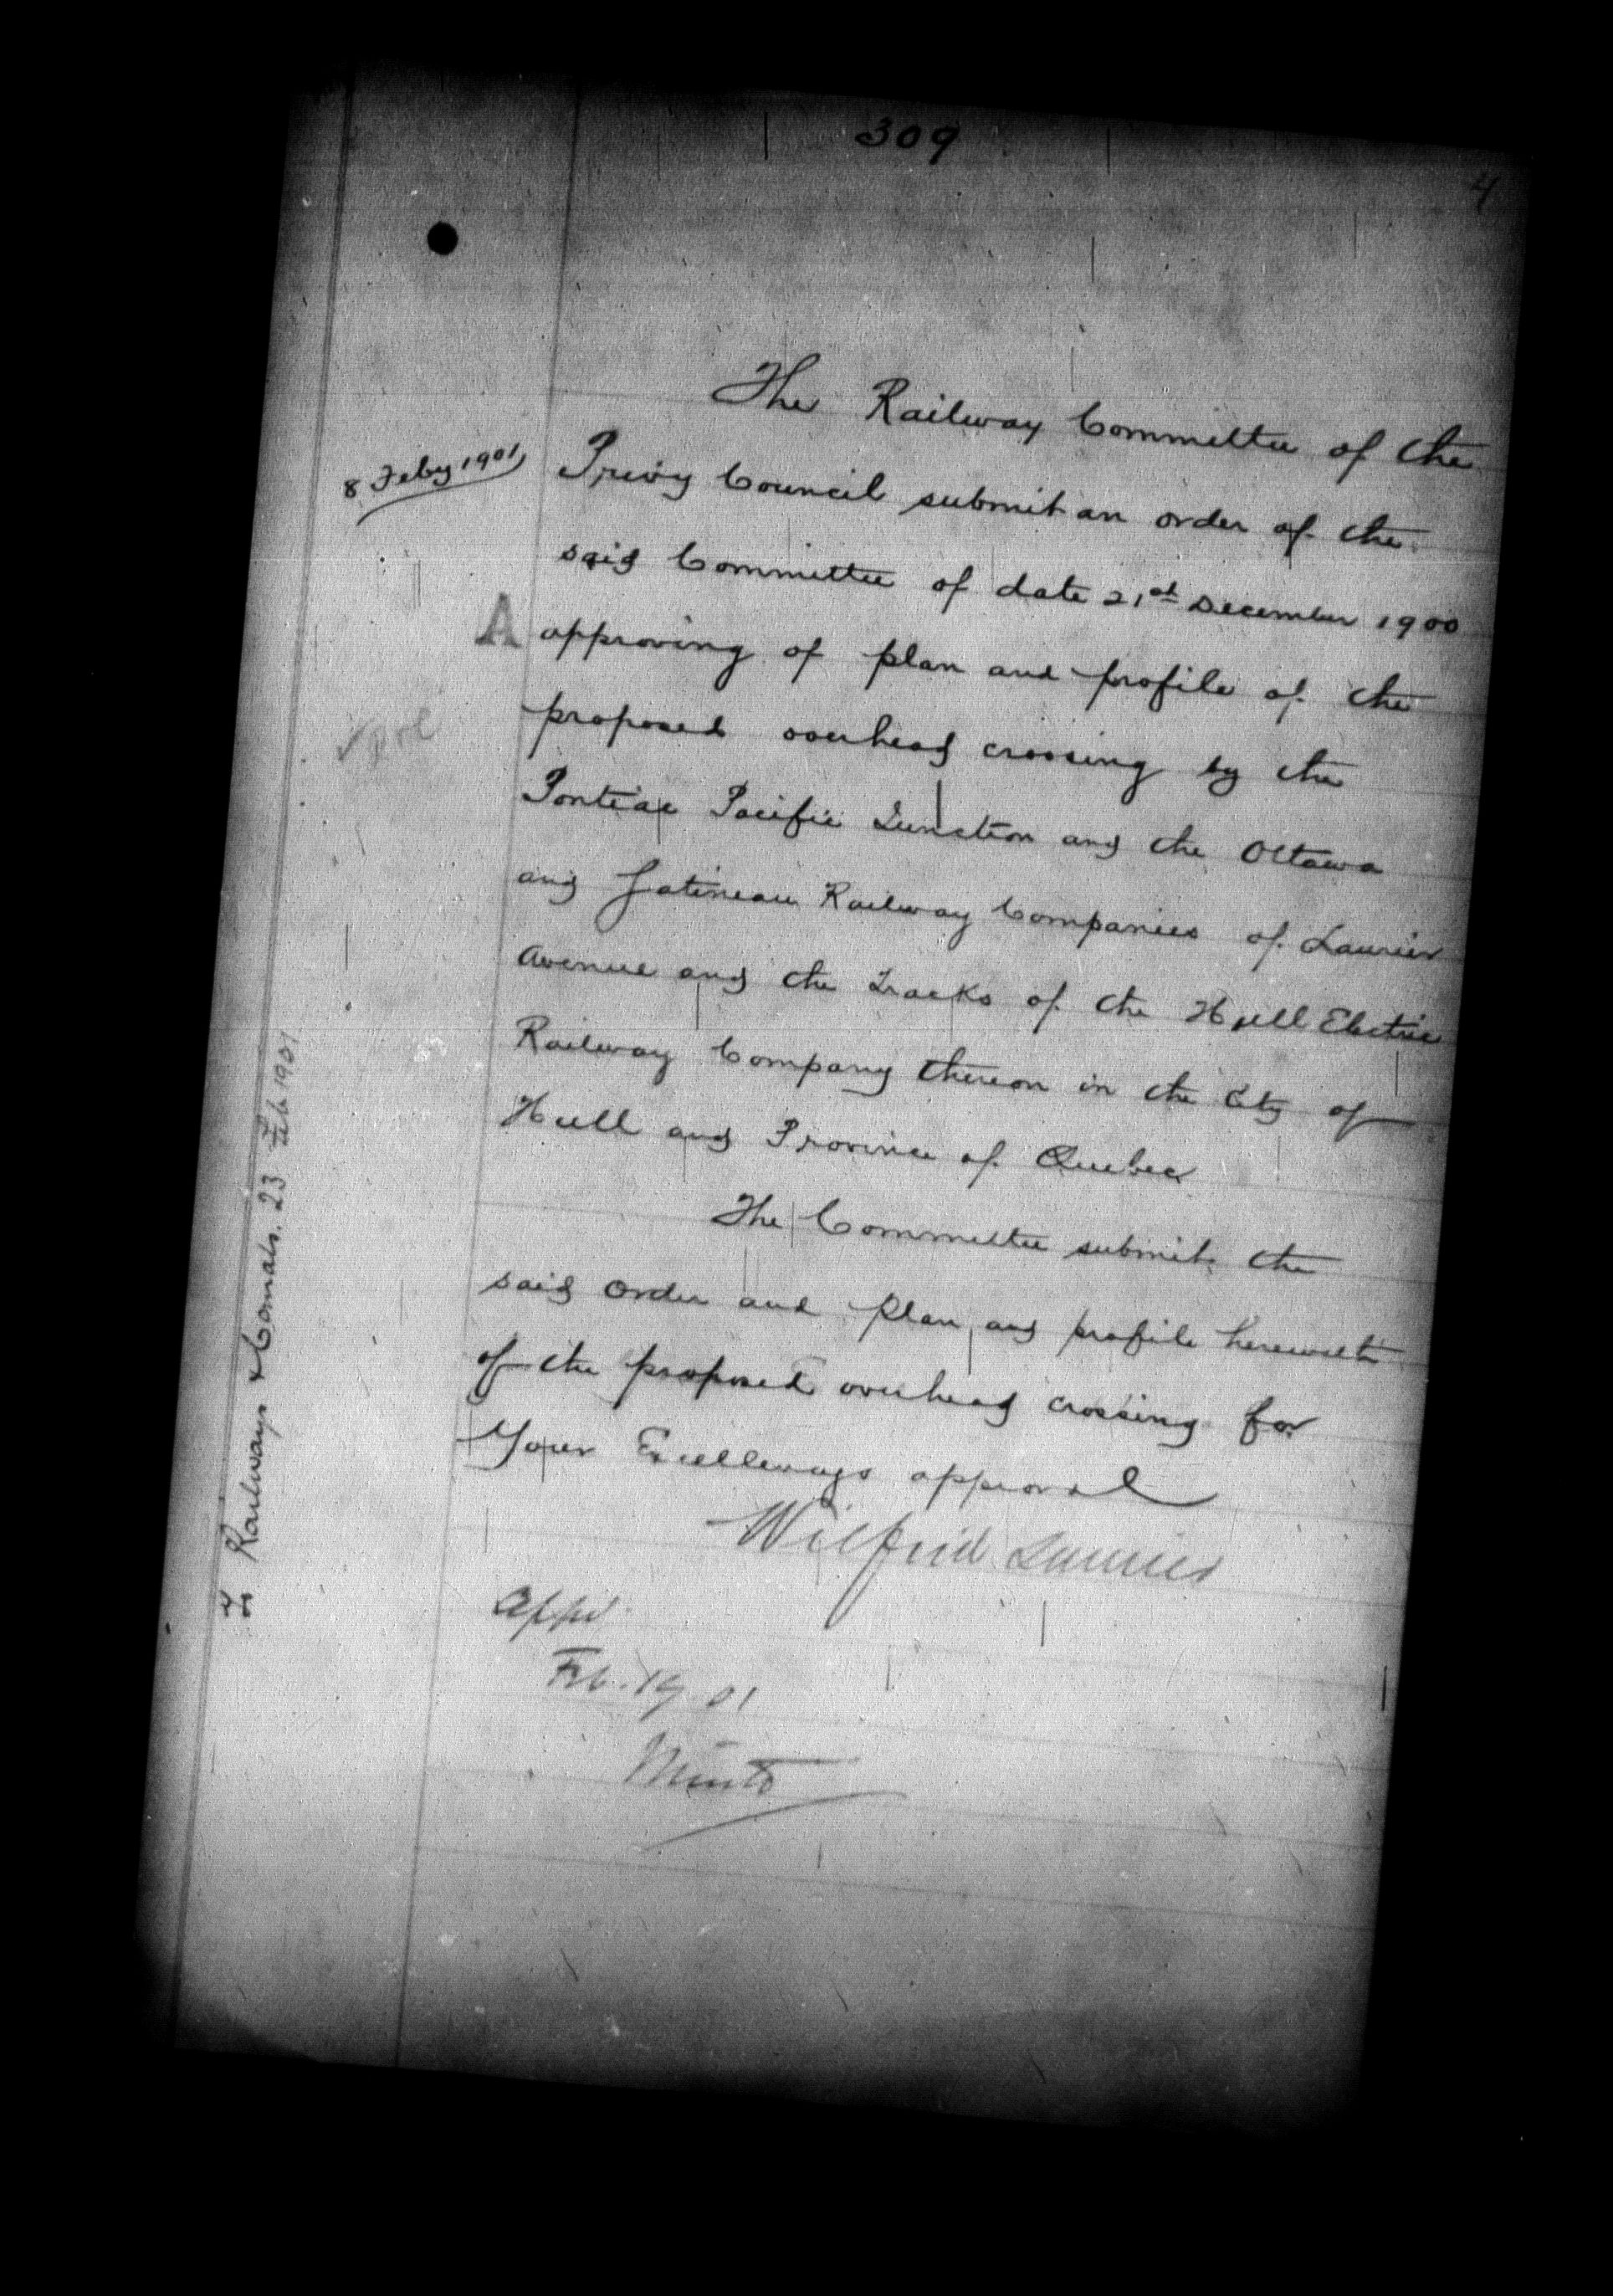 309
4
The Railway Committee of the
8 Feby 1901
Privy Council submit an order of the
said Committee of date 21st December 1900
A
approving of plan and profile of the
proposed overhead crossing by the
Pontiac Pacific Junction and the Ottawa
and Gatineau Railway Companies of Laurier
Avenue and the Tracks of the Hull Electric
Railway Company thereon in the City of
Hull and Province of Quebec
The Committee submit the
said order and plan and profile herewith
of the proposed overhead crossing for
Your Excellencys approval
Wilfrid Laurier
Appd
Feb. 19 01
Minto
Railways & Canals. 23 Feb 1901